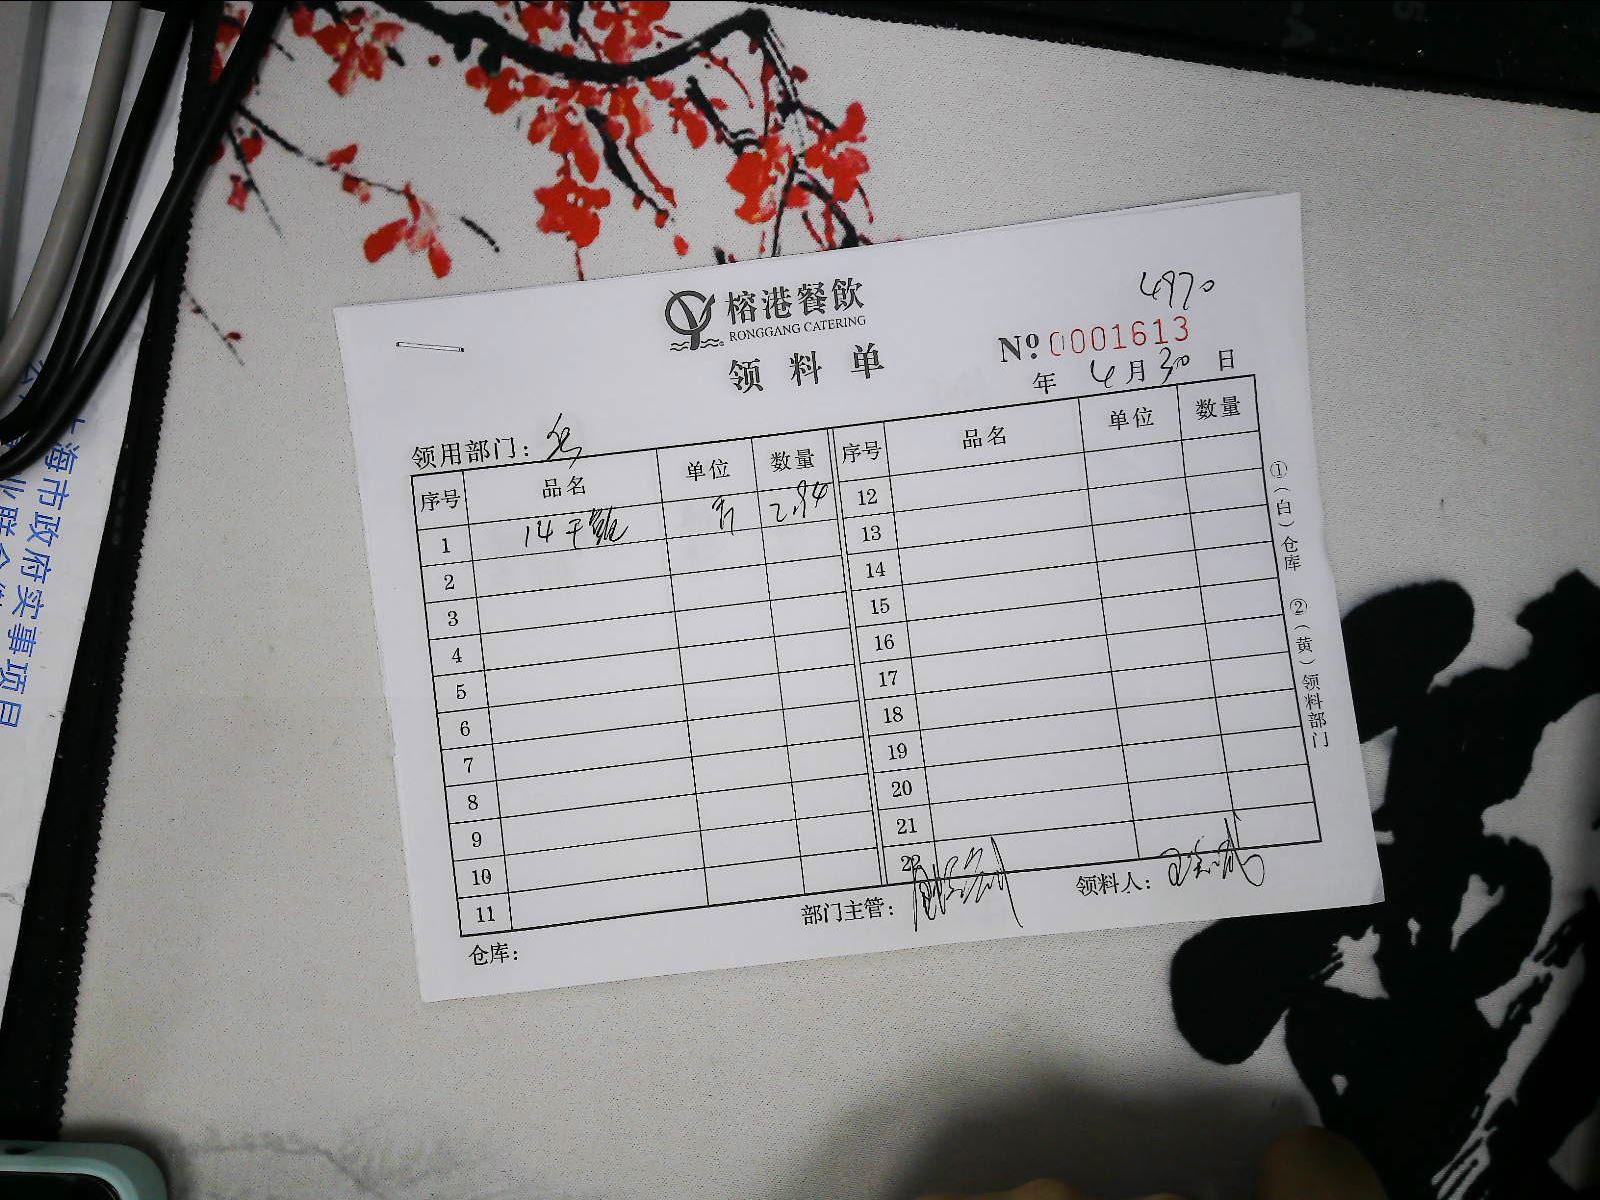 榕港餐飲
RONGGANG CATERING
领料单
4970
Nº 0001613
年 4月30日
领用部门:
序号 品名 单位 数量 序号 品名 单位 数量
1 14干鲍 2.94 12
2 13
3 14
4 15
5 16
6 17
7 18
8 19
9 20
10 21
11 22
仓库: 部门主管: 领料人:
①(白)仓库 ②(黄)领料部门
上海市政府实事项目